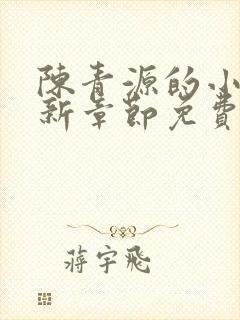 陳青源的小
新章節免費
蔣宇飛